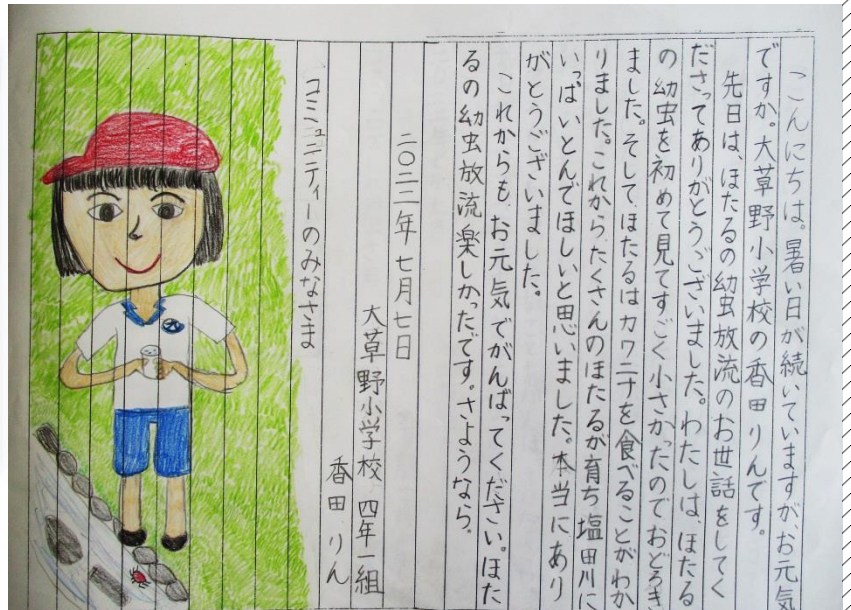 こんにちは。暑い日が続いていますが、お元気
ですか。大草野小学校の香田りんです。
先日は、ほたるの幼虫放流のお世話をしてく
ださってありがとうございました。わたしは、ほたる
の幼虫を初めて見てすごく小さかったのでおどろき
ました。そして、ほたるはカワニナを食べることがわか
りました。これから、たくさんのほたるが育ち塩田川に
いっぱいとんでほしいと思いました。本当にあり
がとうございました。
これからも、お元気でがんばってください。ほた
るの幼虫放流楽しかったです。さようなら。
二〇二二年七月七日
大草野小学校 四年一組
香田 りん
コミュニティーのみなさま